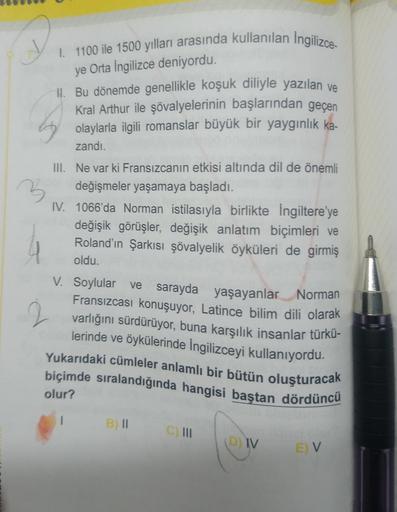 I. 1100 ile 1500 yılları arasında kullanılan İngilizce-
ye Orta İngilizce deniyordu.
II. Bu dönemde genellikle koşuk diliyle yazılan ve
Kral Arthur ile şövalyelerinin başlarından geçen
olaylarla ilgili romanslar büyük bir yaygınlık ka-
zandı.
III. Ne var ki Fransızcanın etkisi altında dil de önemli
değişmeler yaşamaya başladı.
IV. 1066'da Norman istilasıyla birlikte İngiltere'ye
değişik görüşler, değişik anlatım biçimleri ve
Roland'ın Şarkısı şövalyelik öyküleri de girmiş
oldu.
V. Soylular ve sarayda yaşayanlar Norman
Fransızcası konuşuyor, Latince bilim dili olarak
varlığını sürdürüyor, buna karşılık insanlar türkü-
lerinde ve öykülerinde İngilizceyi kullanıyordu.
Yukarıdaki cümleler anlamlı bir bütün oluşturacak
biçimde sıralandığında hangisi baştan dördüncü
olur?
I B) II C) III D) IV E) V
3
4
2